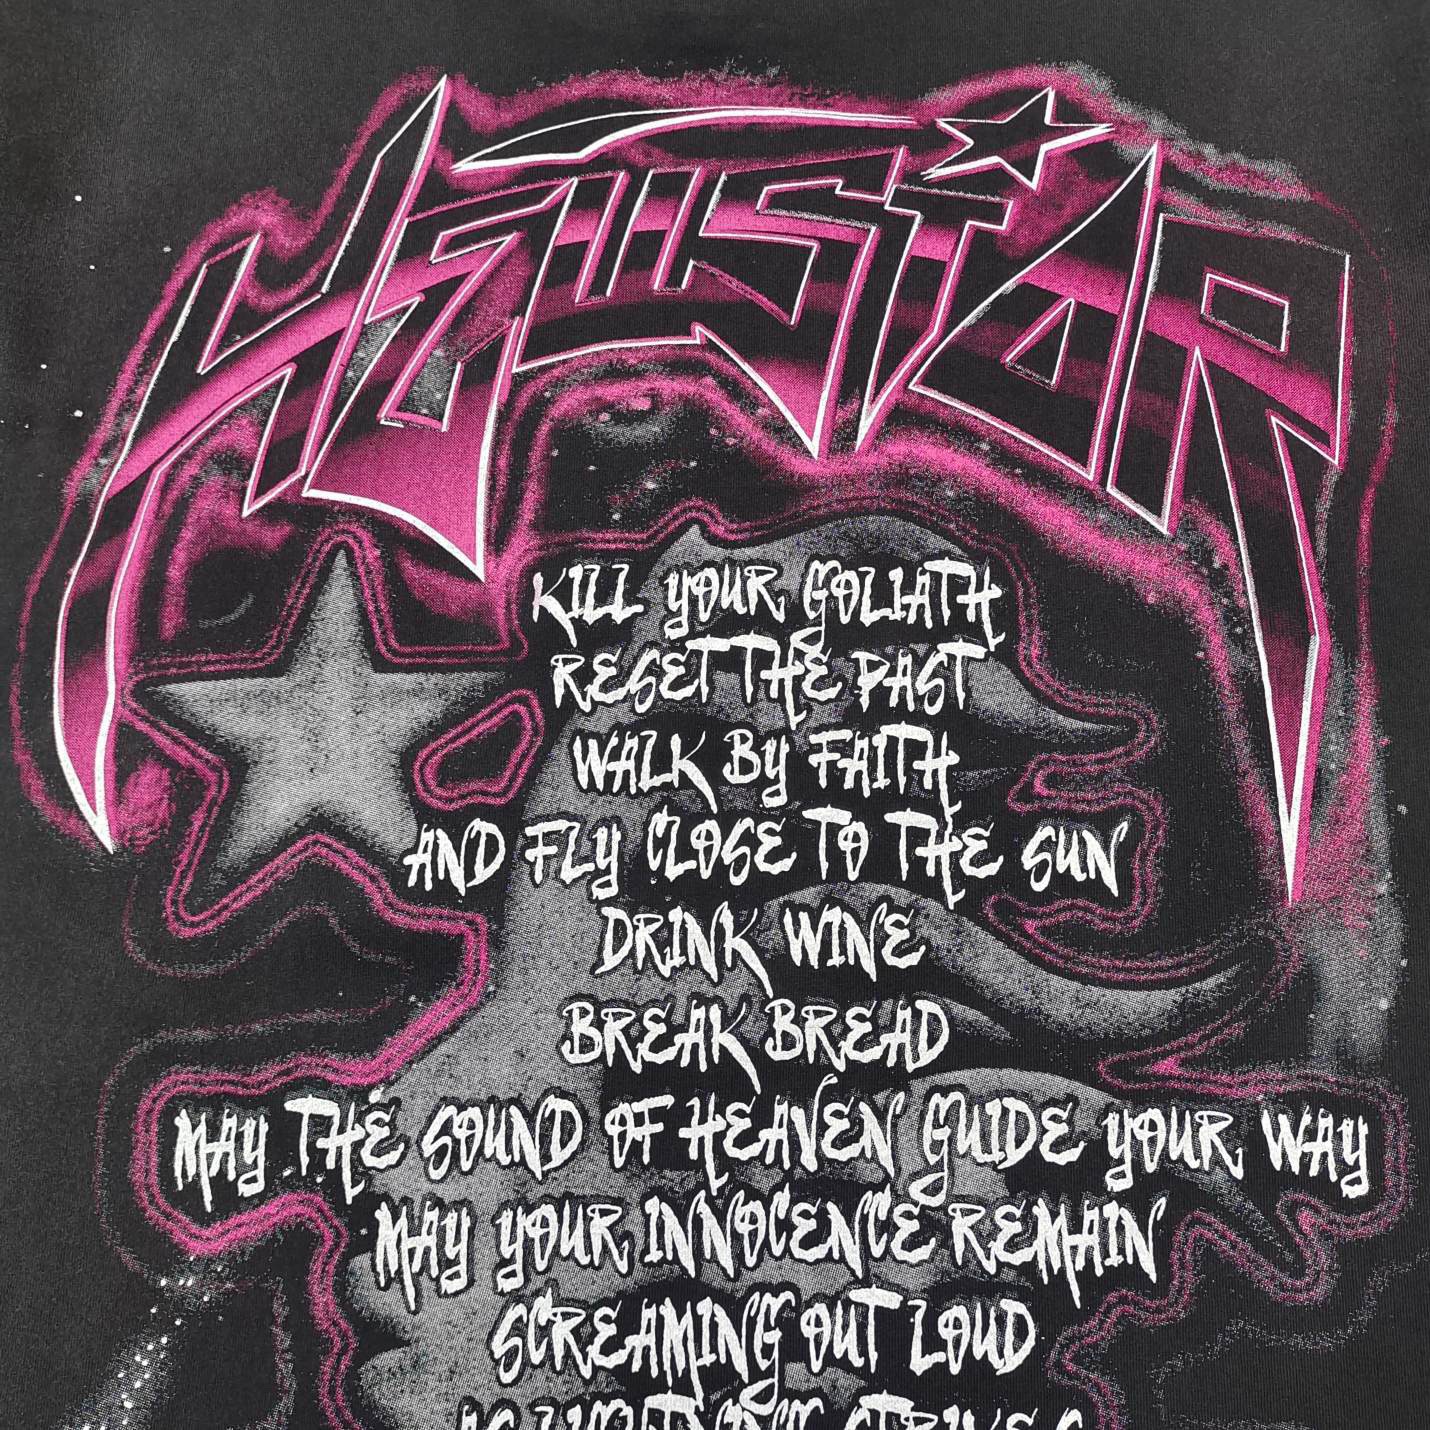 HELLSTAR
KILL YOUR GOLIATH
RESET THE PAST
WALK BY FAITH
AND FLY CLOSE TO THE SUN
DRINK WINE
BREAK BREAD
MAY THE SOUND OF HEAVEN GUIDE YOUR WAY
MAY YOUR INNOCENCE REMAIN
SCREAMING OUT LOUD
AS LIGHTNING STRIKES